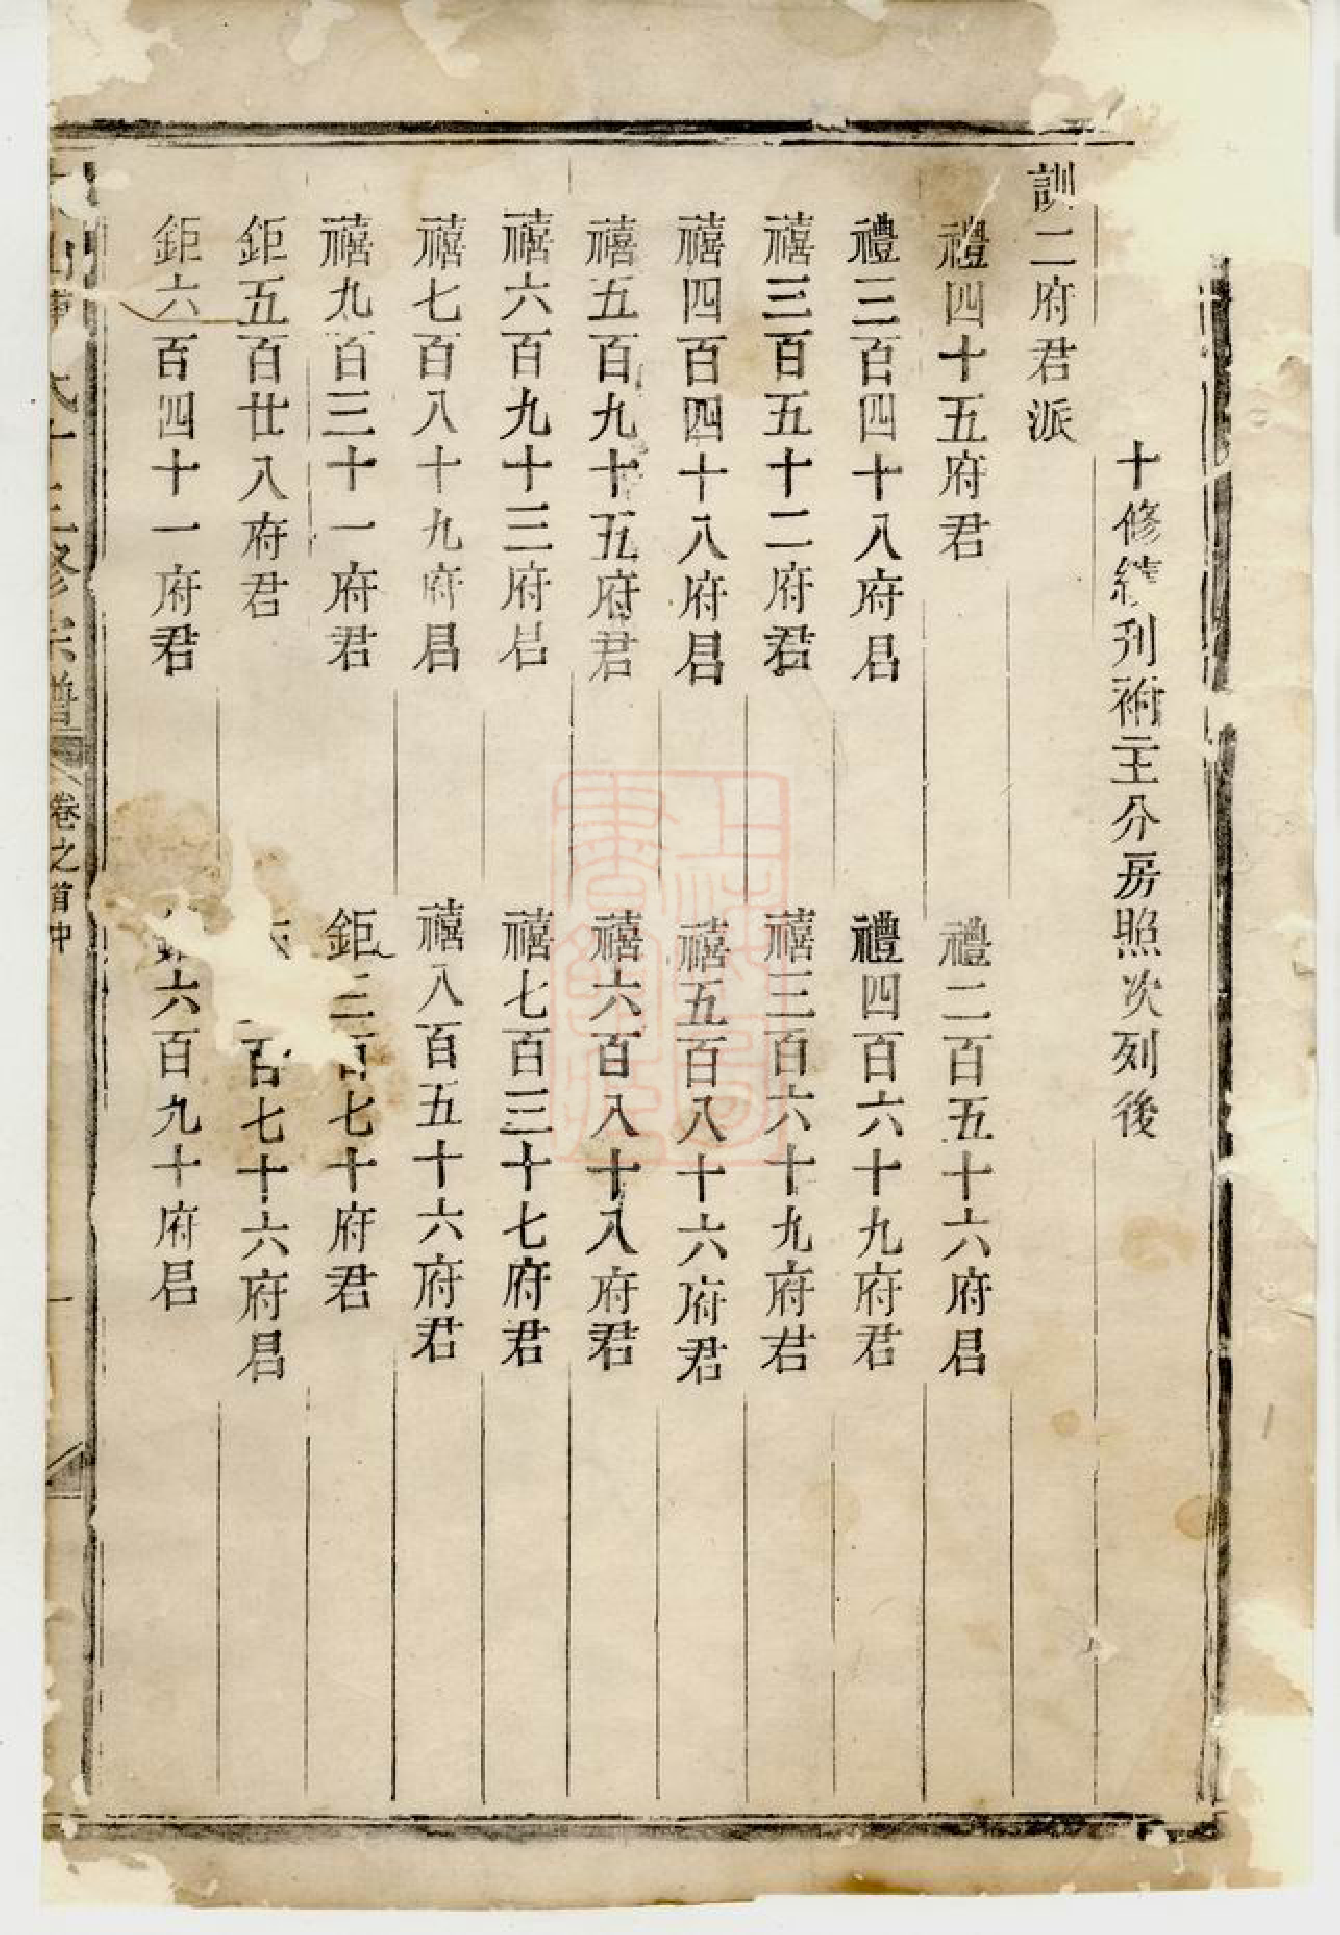 十修續刋祔主分房照次列後
訓二府君派
禮四十五府君
禮二百五十六府君
禮三百四十八府君
禮四百六十九府君
禧三百五十二府君
禧三百六十九府君
禧四百四十八府君
禧五百八十六府君
禧五百九十五府君
禧六百八十八府君
禧六百九十三府君
禧七百三十七府君
禧七百八十九府君
禧八百五十六府君
禧九百三十一府君
鉅三百七十府君
鉅五百廿八府君
百七十六府君
鉅六百四十一府君
六百九十府君
修宗譜
卷之首中
一
上海圖書館藏